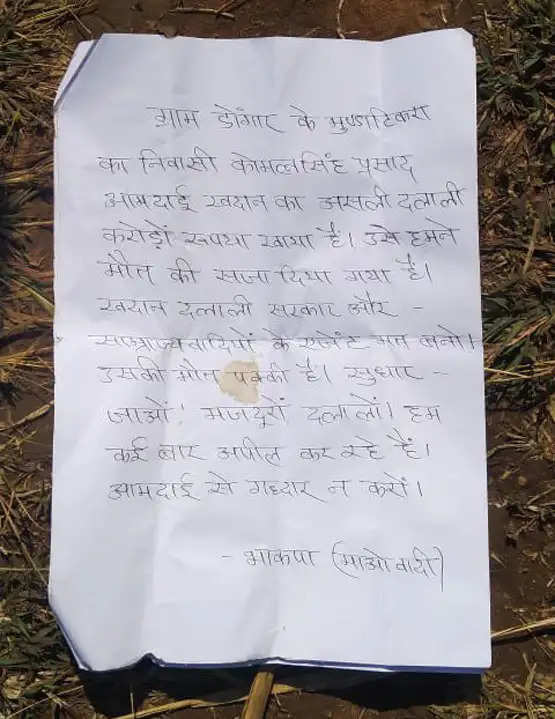 ग्राम डोंगार के मुण्डाटिकरा
का निवासी कोमलसिंह प्रसाद
आमदाई खदान का असली दलाली
करोड़ों रूपया खाया है। उसे हमने
मौत की सजा दिया गया है।
खदान दलाली सरकार और -
साम्राज्यवादियों के एजेंट मत बनो।
उसकी मौत पक्की है। सुधार -
जाओं! मजदूरों दलालों। हम
कई बार अपील कर रहे हैं।
आमदाई से गध्दार न करों।
- भाकपा (माओवादी)